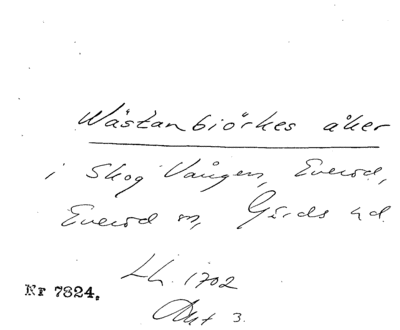 Wästanbiörkes åker
i Skog Vången, Everöd,
Everöd sn, Gärds hd.
Lh. 1702
Nr 7824.
Akt 3.